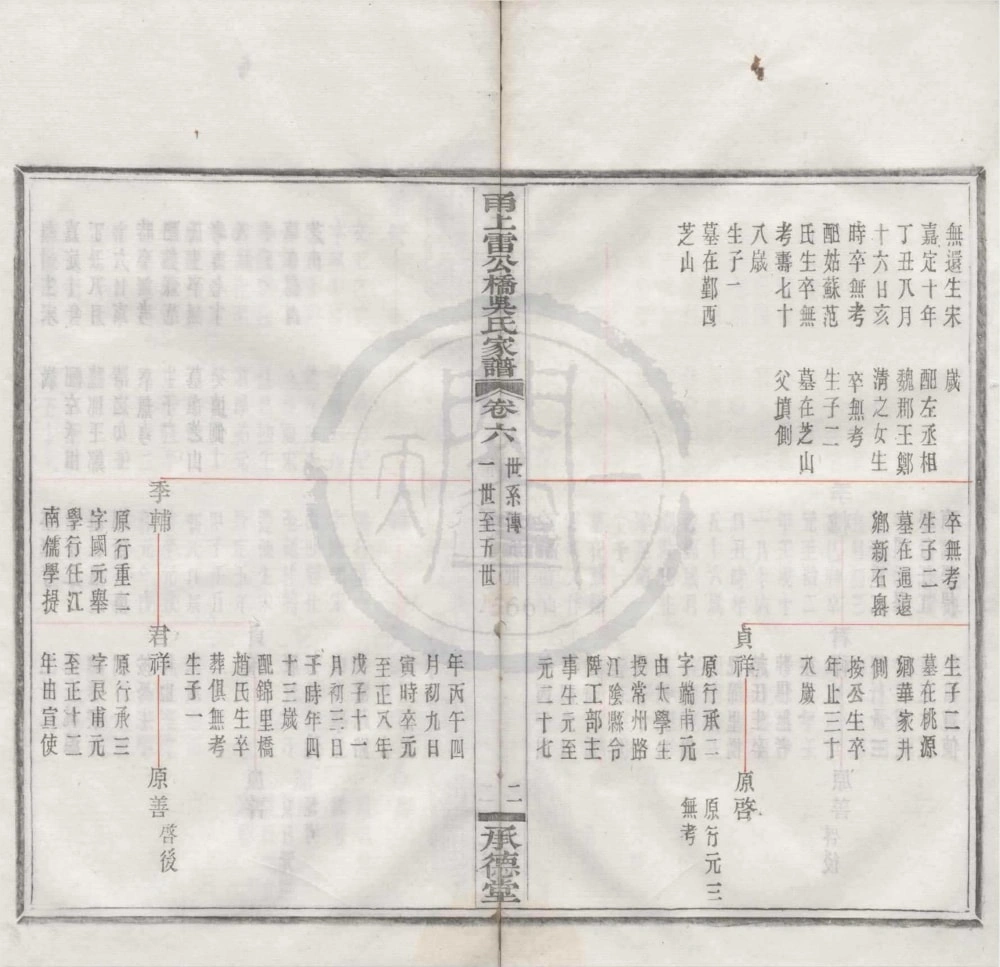 無還生宋
嘉定十年
丁丑八月
十六日亥
時卒無考
配姑蘇范
氏生卒無
考壽七十
八歲
生子一
墓在鄞西
芝山
歲
配左丞相
魏郡王鄭
清之女生
卒無考
生子二
墓在芝山
父墳側
卒無考
生子二
墓在通遠
鄉新石
生子二
墓在桃源
鄉華家井
側
按公生卒
年止三十
八歲
貞祥
原行承二
字端甫元
由太學生
授常州路
江陰縣令
陞工部主
事生元至
元二十七
原啓
原行元三
無考
甬上雷公橋吳氏家譜
卷六
世系傳
一世至五世
二
承德堂
季輔
原行重二
字國元舉
學行任江
南儒學提
年丙午四
月初九日
寅時卒元
至正八年
戊子十一
月初三日
子時年四
十三歲
配錦里橋
趙氏生卒
葬俱無考
生子一
君祥
原行承三
字艮甫元
至正十二
年由宣使
原善
啓後